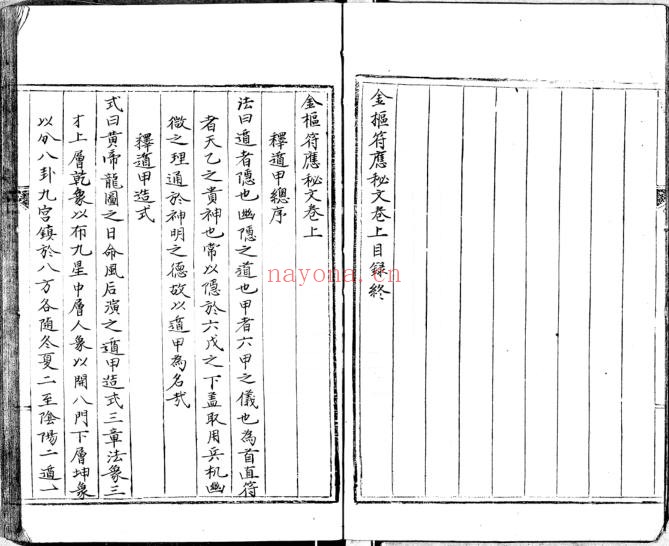 金樞符應秘文卷上目録終
金樞符應秘文卷上
釋遁甲總序
法曰遁者隱也幽隱之道也甲者六甲之儀也為首直符
者天乙之貴神也常以隱於六戊之下盖取用兵机幽
微之理通於神明之德故以遁甲為名哉
釋遁甲造式
式曰黄帝龍圖之日命風后演之遁甲造式三章法象三
才上層乾象以布九星中層人象以開八門下層坤象
以分八卦九宫鎮於八方各随冬夏二至陰陽二遁一
nayona.cn